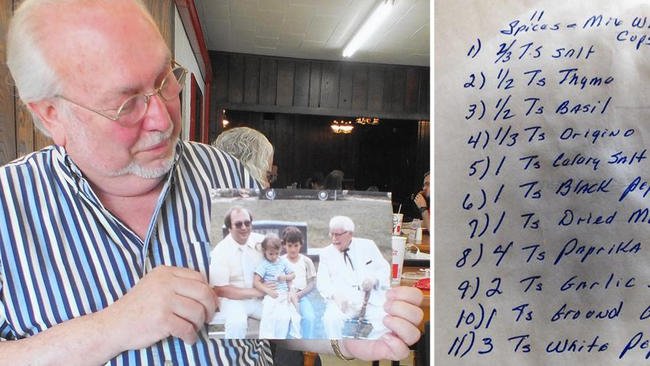 11
Spices - Mix W
Cups
1) 2/3 Ts Salt
2) 1/2 Ts Thyme
3) 1/2 Ts Basil
4) 1/3 Ts Origino
5) 1 Ts Celory Salt
6) 1 Ts Black Pep
7) 1 Ts Dried M
8) 4 Ts Paprika
9) 2 Ts Garlic S
10) 1 Ts Ground G
11) 3 Ts White Pep